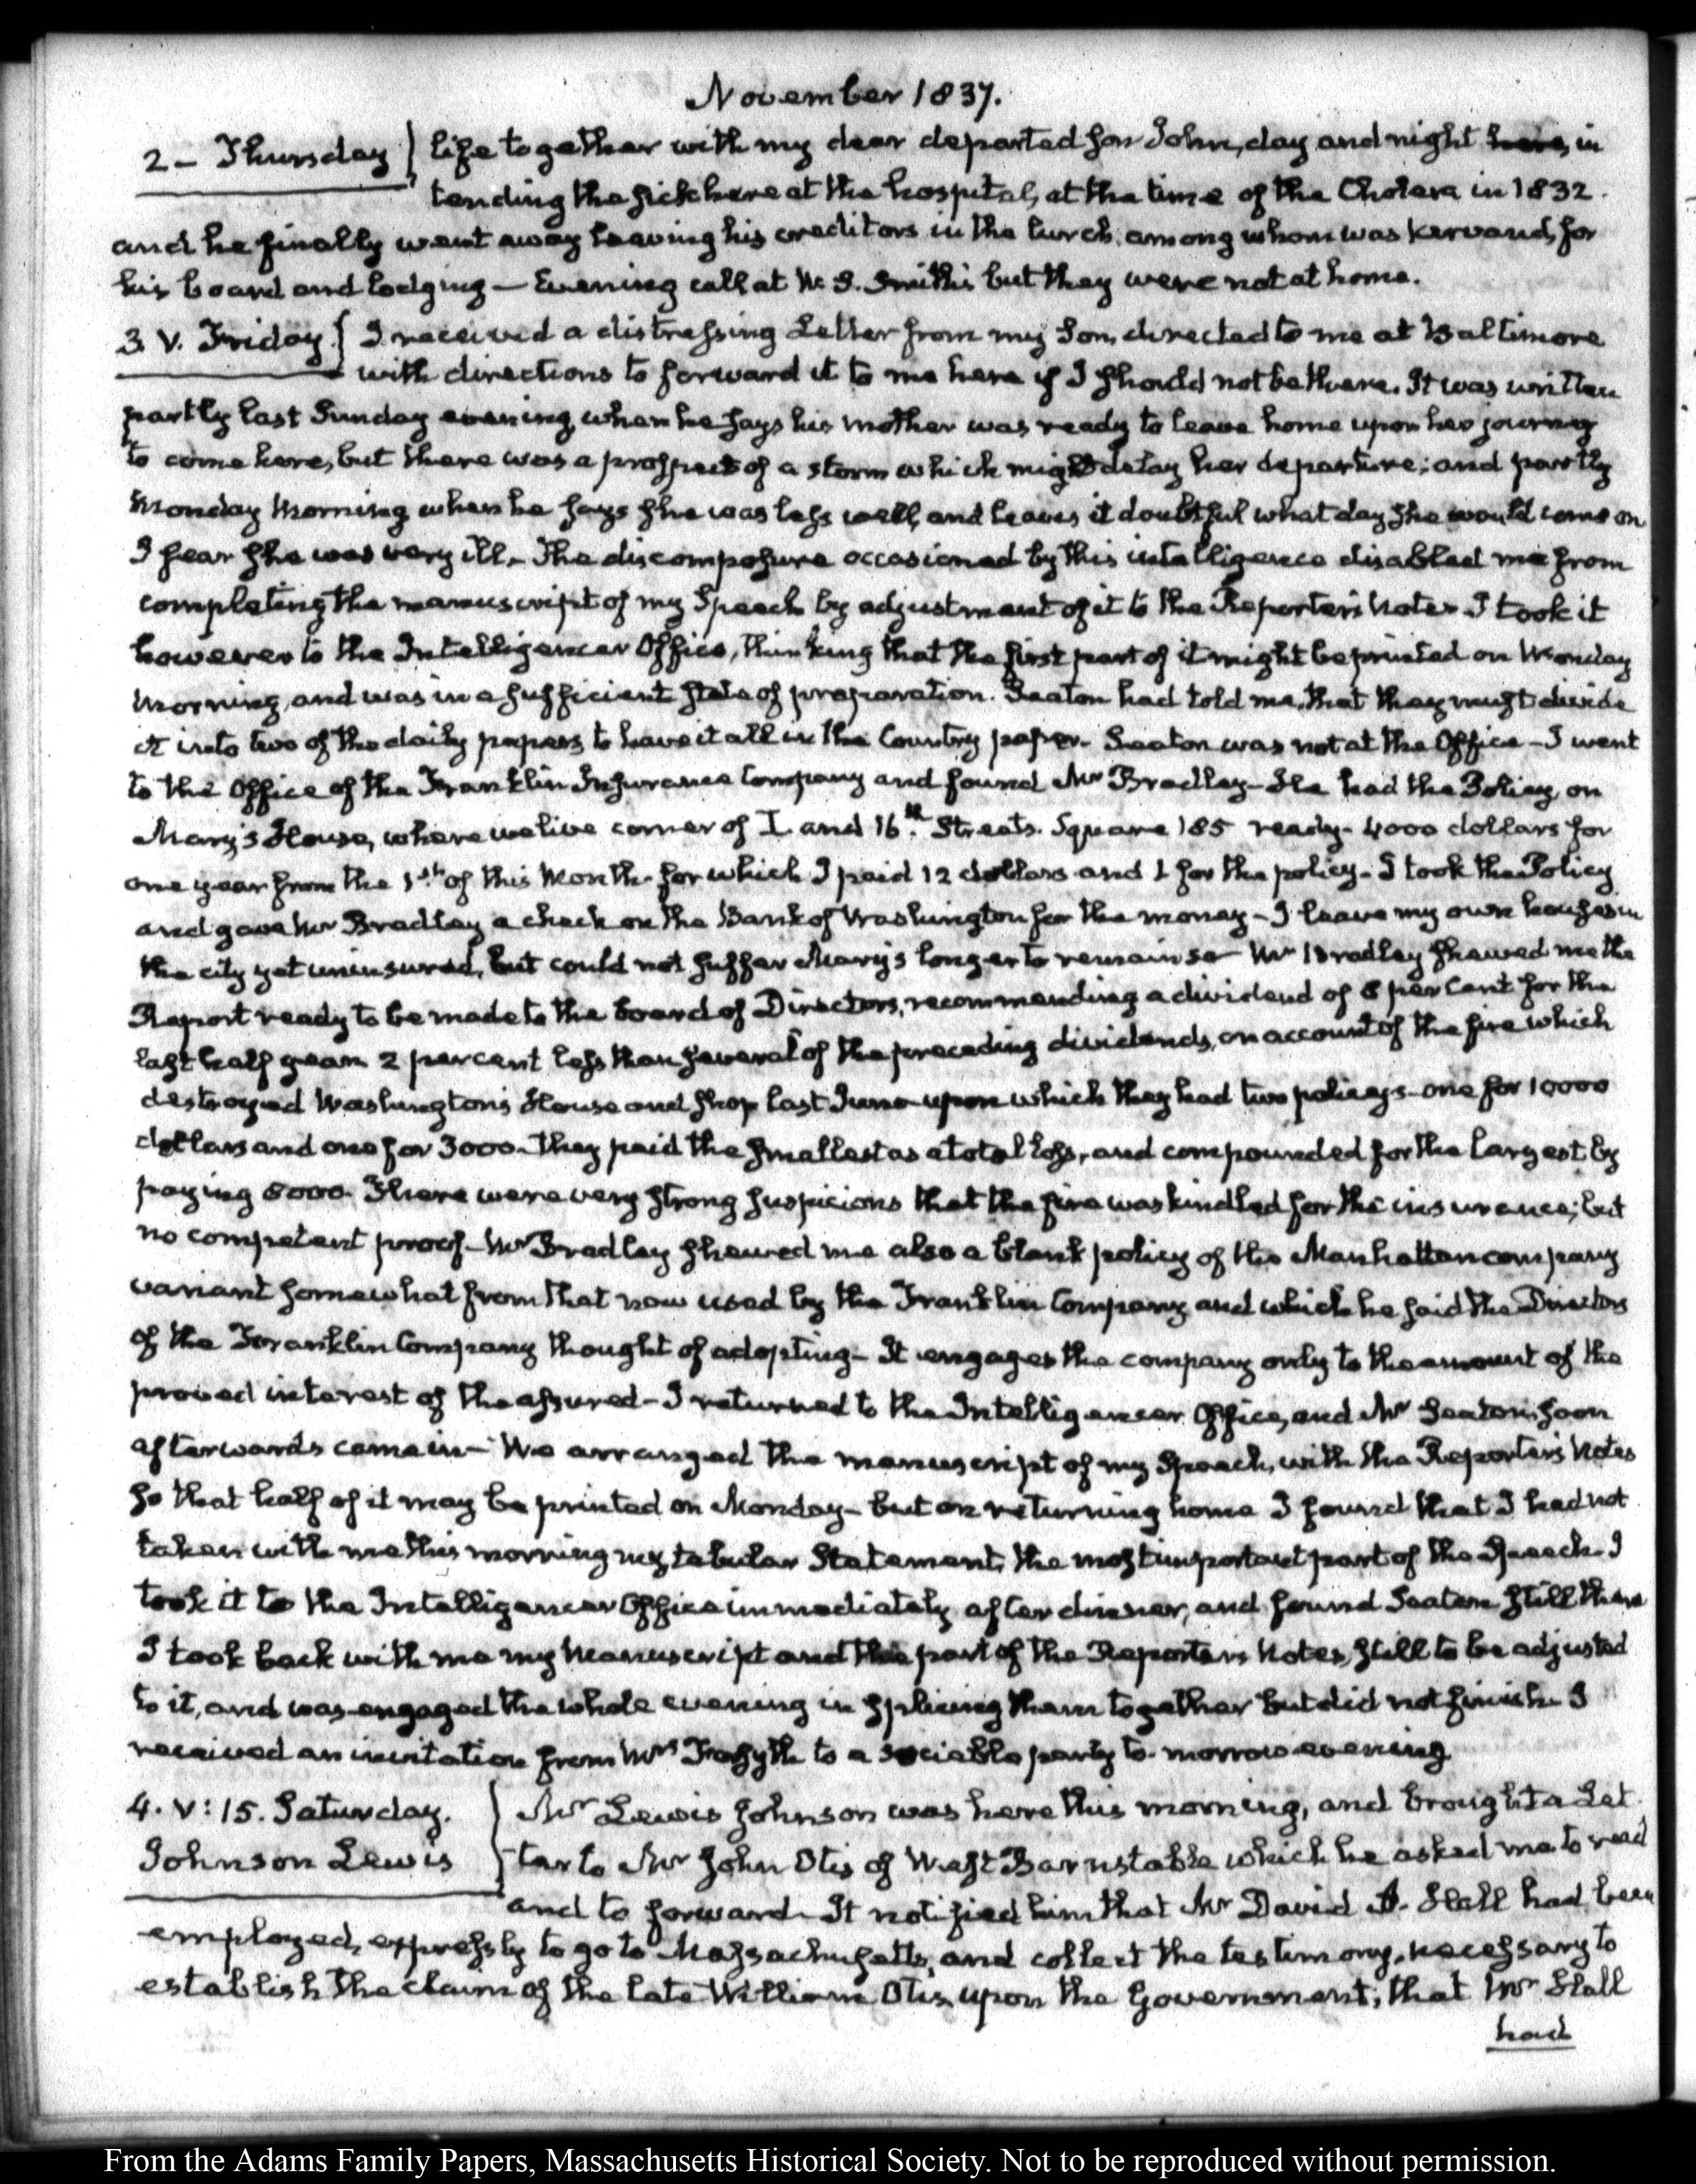 November 1837.
2 - Thursday } life together with my dear departed son John, day and night here, in
tending the sick here at the hospital, at the time of the Cholera in 1832.
and he finally went away leaving his creditors in the lurch, among whom was Kervand, for
his board and lodging — Evening call at W. S. Smith's but they were not at home.
3. V. Friday. { I received a distressing Letter from my Son, directed to me at Baltimore
with directions to forward it to me here if I should not be there. It was written
partly last Sunday evening, when he says his mother was ready to leave home upon her journey
to come here, but there was a prospect of a storm which might delay her departure; and partly
Monday Morning when he says she was less well, and leaves it doubtful what day she would come on
I fear she was very ill. The discomposure occasioned by this intelligence disabled me from
completing the manuscript of my Speech by adjustment of it to the Reporter's Notes. I took it
however to the Intelligencer Office, thinking that the first part of it might be printed on Monday
Morning, and was in a sufficient state of preparation. Seaton had told me, that they must divide
it into two of the daily papers to have it all in the Country paper. Seaton was not at the Office - I went
to the Office of the Franklin Insurance Company and found Mr Bradley - He had the Policy, on
Mary's House, where we live corner of I. and 16th. Streets. Square 185 ready - 4000 dollars for
one year from the 1st of this Month for which I paid 12 dollars and 1 for the policy - I took the Policy
and gave Mr Bradley a check on the Bank of Washington for the money - I leave my own houses in
the city yet uninsured, but could not suffer Mary's longer to remain so - Mr Bradley shewed me the
Report ready to be made to the board of Directors, recommending a dividend of 8 per Cent for the
last half year. 2 percent less than several of the preceding dividends, on account of the fire which
destroyed Washington's House and shop last June upon which they had two policeys - one for 10000
dollars and one for 3000. They paid the smallest as a total loss, and compounded for the largest by
paying 8000. There were very strong suspicions that the fire was kindled for the insurance; but
no competent proof - Mr Bradley shewed me also a blank policy of the Manhattan company
variant somewhat from that now used by the Franklin Company and which he said the Directors
of the Franklin Company thought of adopting - It engages the company only to the amount of the
proved interest of the assured - I returned to the Intelligencer Office, and Mr Seaton soon
afterwards came in - We arranged the manuscript of my Speech, with the Reporter's Notes
so that half of it may be printed on Monday - but on returning home I found that I had not
taken with me this morning my tabular Statement, the most important part of the Speech. I
took it to the Intelligencer Office immediately after dinner, and found Seaton still there
I took back with me my Manuscript and the part of the Reporter's Notes, still to be adjusted
to it, and was engaged the whole evening in splicing them together but did not finish. I
received an invitation from Mrs Forsyth to a sociable party to-morrow evening.
4. V: 15. Saturday. } Mr Lewis Johnson was here this morning, and brought a Let
Johnson Lewis } ter to Mr John Otis of West Barnstable which he asked me to read
and to forward. It notified him that Mr David A. Hall had been
employed, expressly to go to Massachusetts, and collect the testimony, necessary to
establish the claim of the late William Otis, upon the Government; that Mr Hall
had
From the Adams Family Papers, Massachusetts Historical Society. Not to be reproduced without permission.